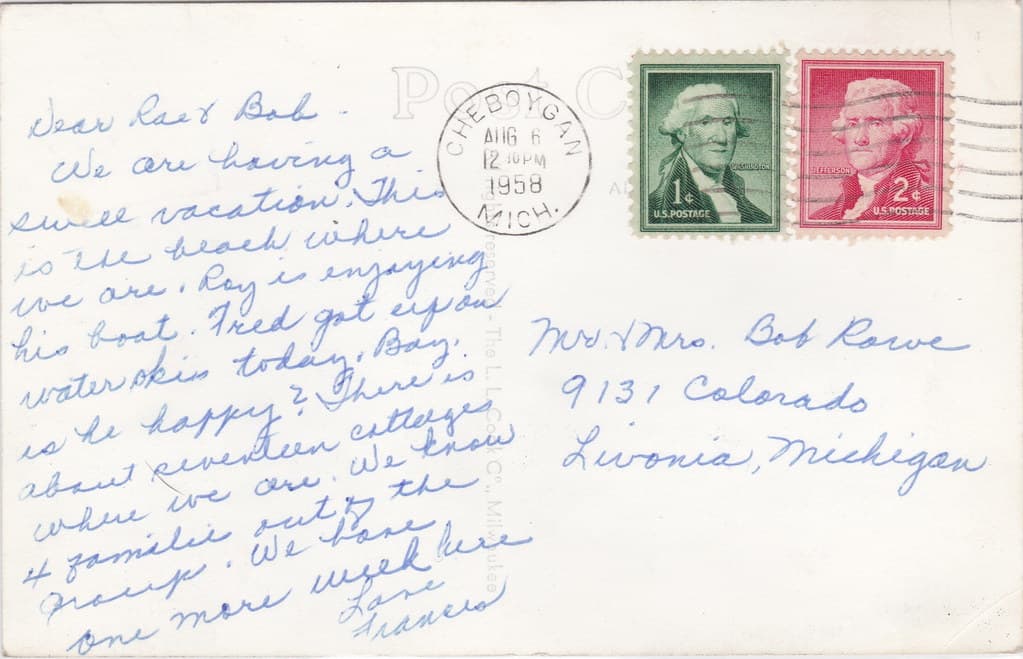 Post C
CHEBOYGAN
AUG 6
12 PM
1958
MICH.
WASHINGTON
1¢
U.S. POSTAGE
JEFFERSON
2¢
U.S. POSTAGE
Dear Rae & Bob -
We are having a
swell vacation. This
is the beach where
we are. Roy is enjoying
his boat. Fred got up on
water skis today. Boy,
is he happy? There is
about seventeen cottages
where we are. We know
4 familie out of the
group. We have
one more week here
Love
Frances
Mr. & Mrs. Bob Rowe
9131 Colorado
Livonia, Michigan
rights reserved - The L. L. Cook Co., Milwaukee